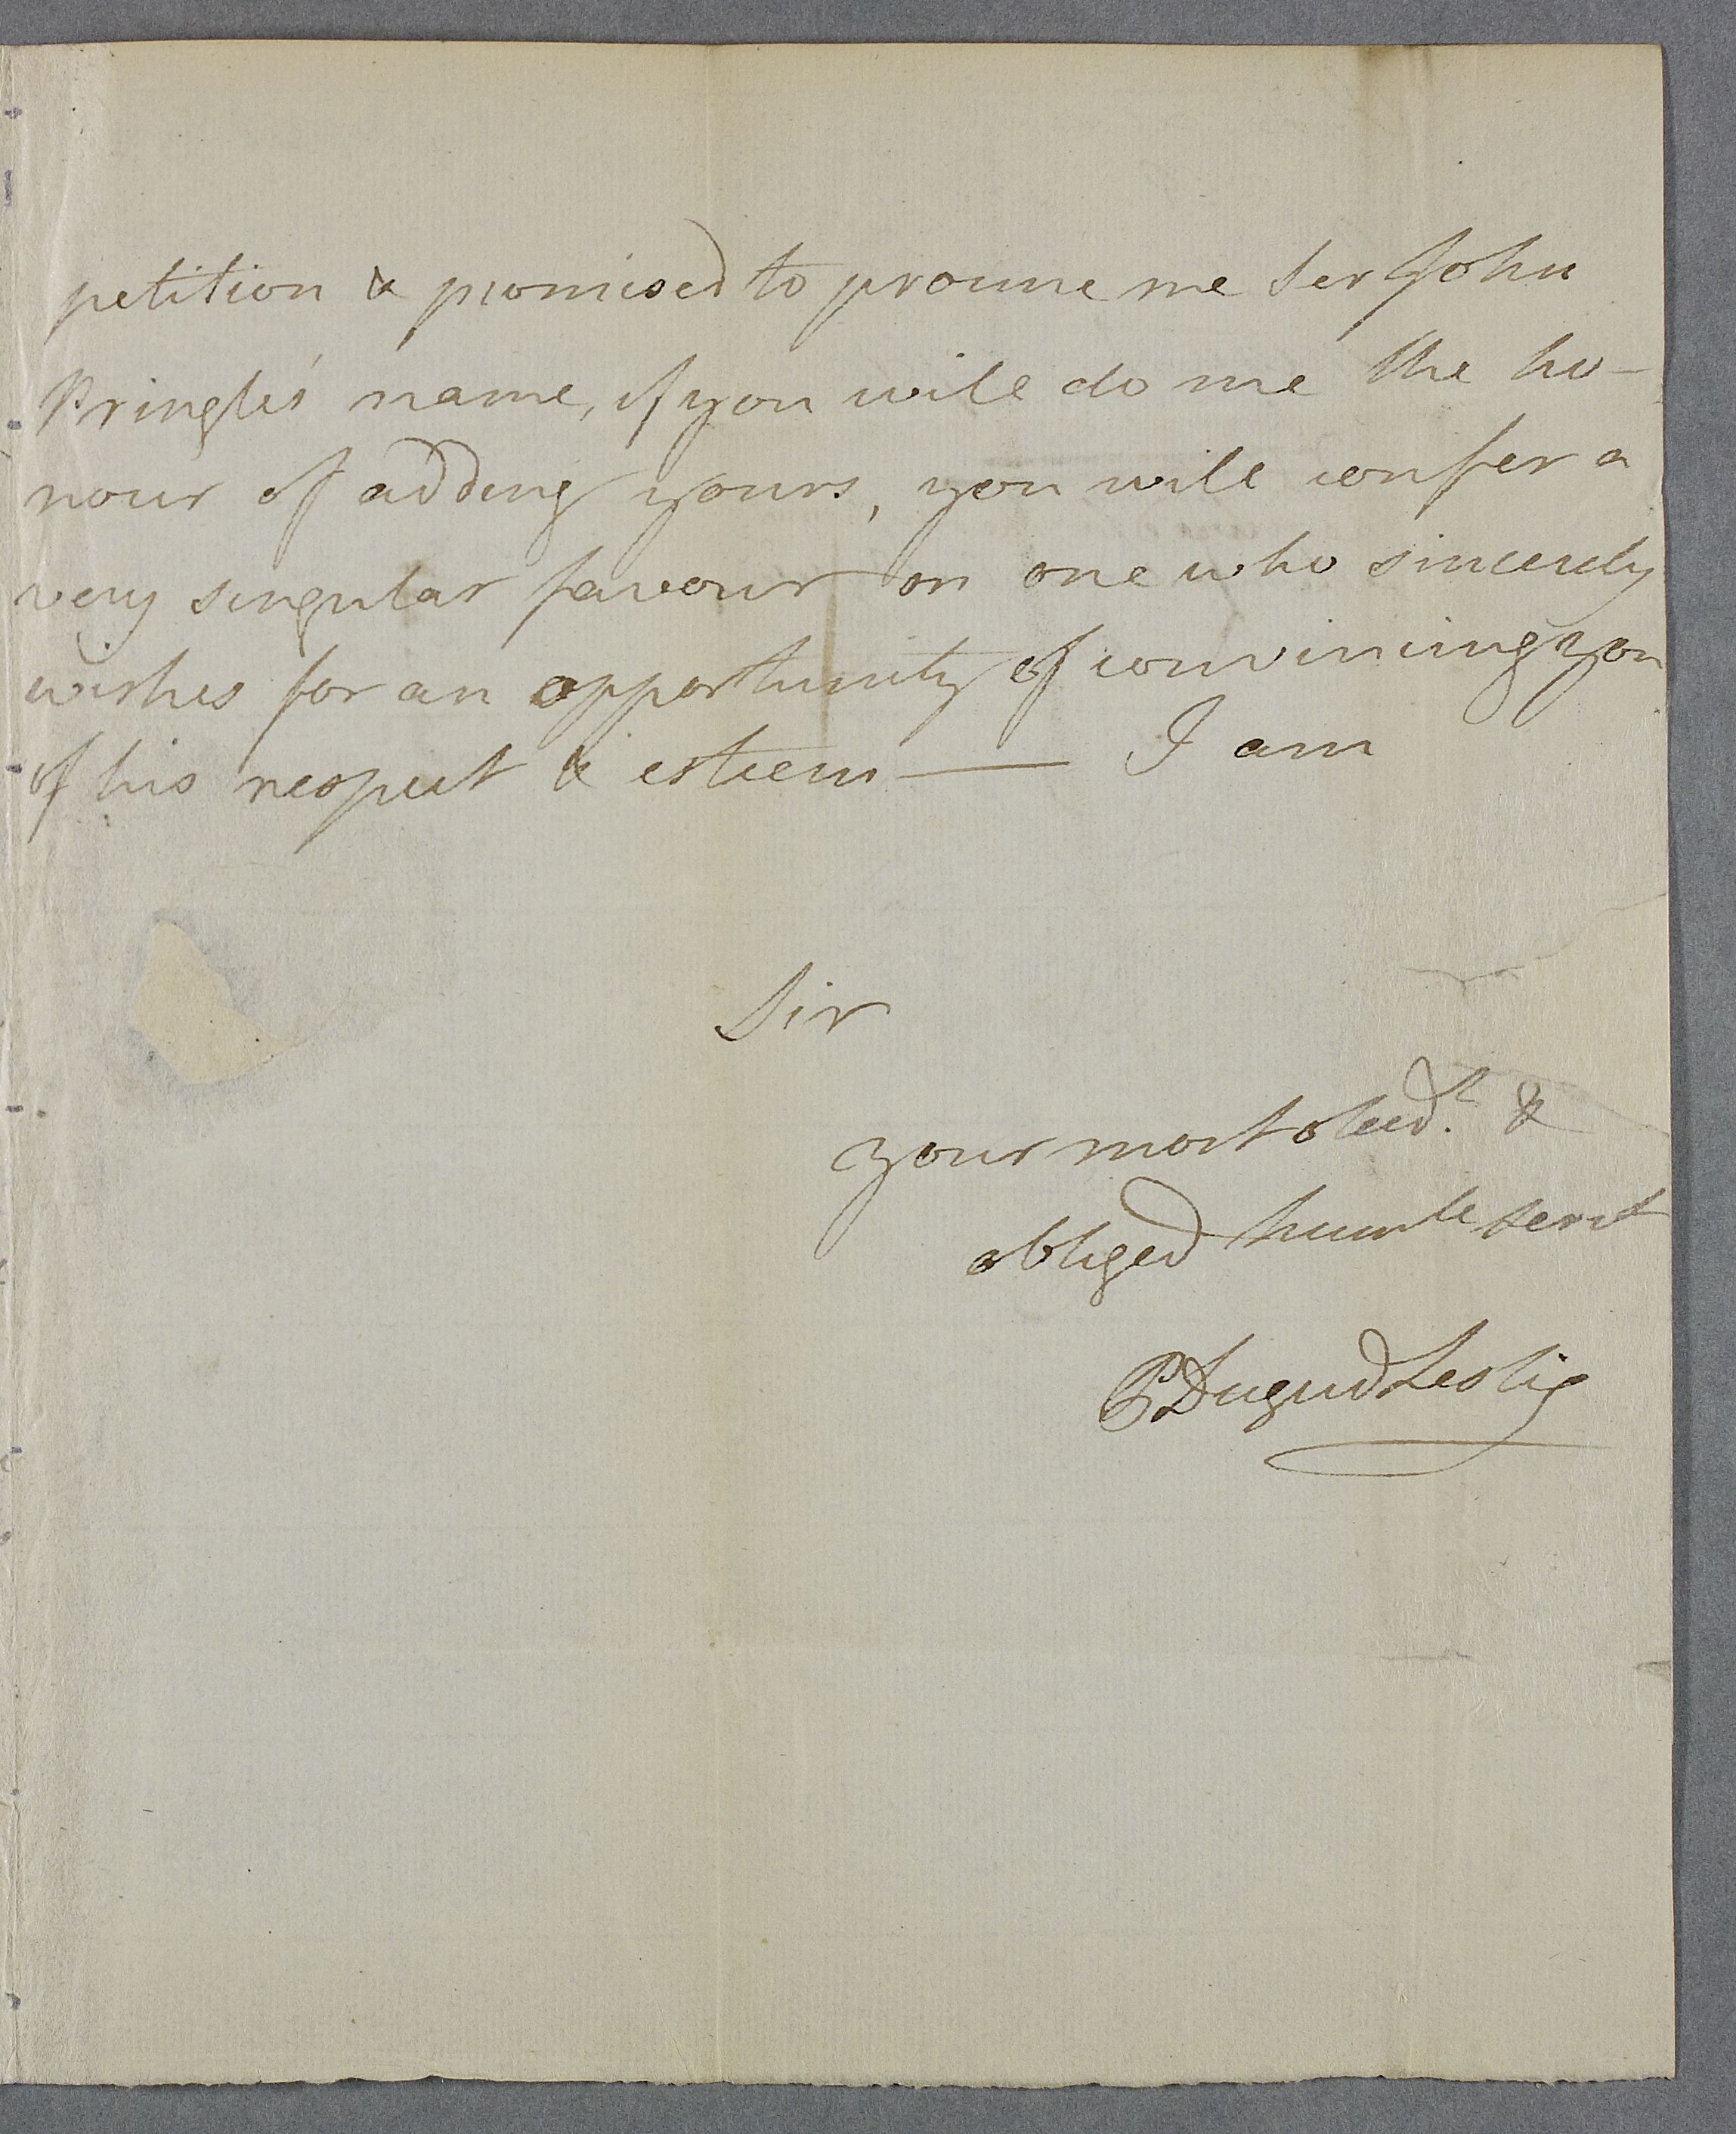 petition & promised to procure me Sir John
Pringles name, if you will do me the ho-
nour of adding yours, you will confer a
very singular favour on one who sincerely
wishes for an opportunity of convincing you
of his respect & esteem — I am
Sir
your most obed.t &
obliged humle servt
P Dugud Leslie